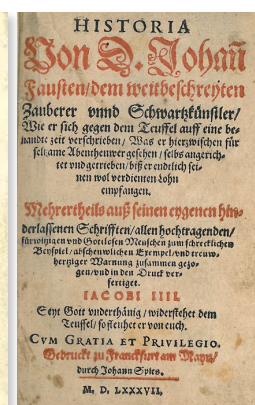 HISTORIA
Von D. Johañ
Fausten/dem weitbeschreyten
Zauberer vnnd Schwartzkünstler/
Wie er sich gegen dem Teuffel auff eine be-
nandte zeit verschrieben/ Was er hierzwischen für
seltzame Abentheuwer gesehen/ selbs angerich-
tet vnd getrieben/ biß er endtlich sei-
nen wol verdienten Lohn
empfangen.
Mehrertheils auß seinen eygenen hin-
derlassenen Schrifften/allen hochtragenden/
fürwitzigen vnd Gottlosen Menschen zum schrecklichen
Beyspiel/ abscheuwlichen Exempel/vnd treuw-
hertziger Warnung zusammen gezo-
gen/vnd in den Druck ver-
fertiget.
IACOBI IIII.
Seyt Gott vnderthänig/ widerstehet dem
Teuffel/ so fleuhet er von euch.
CVM GRATIA ET PRIVILEGIO.
Gedruckt zu Franckfurt am Mayn/
durch Johann Spies.
M. D. LXXXVII.